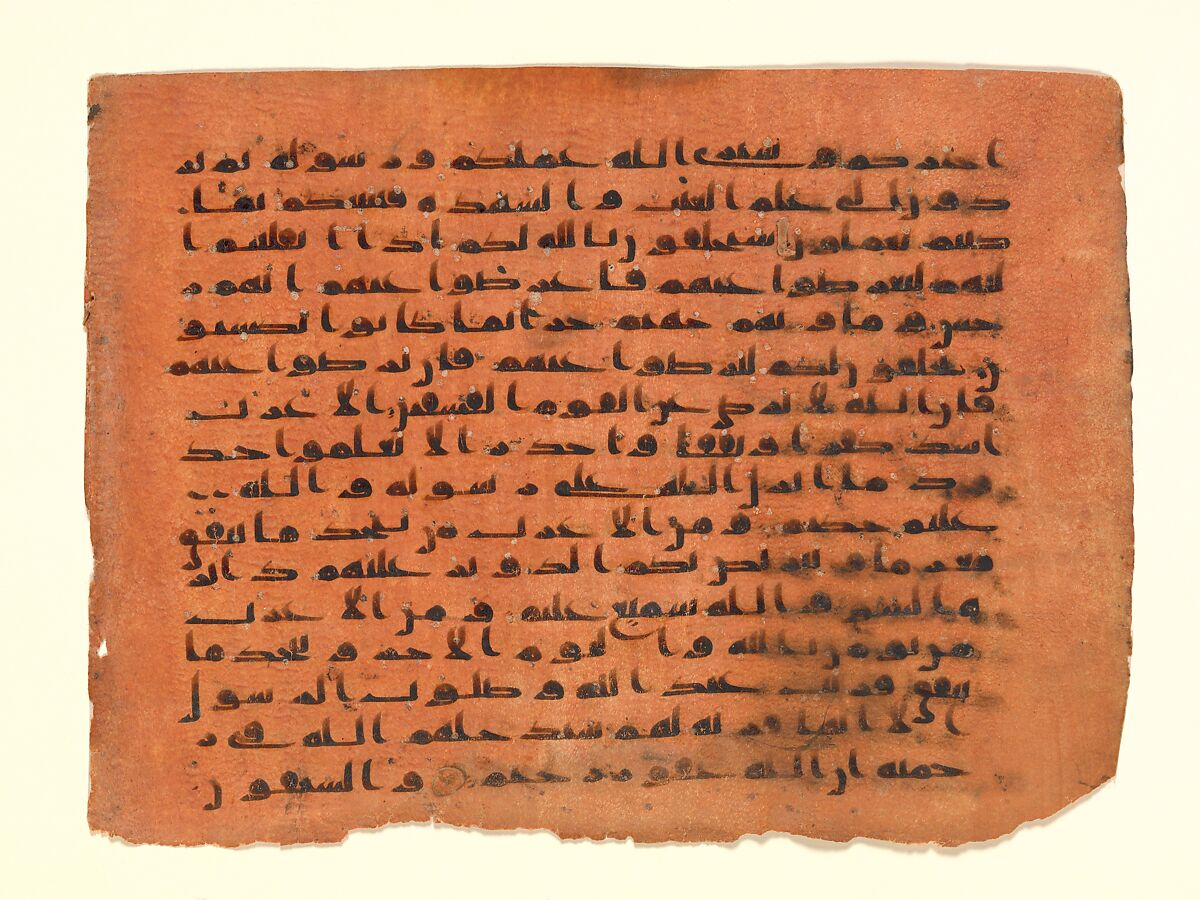 اخبركم وسيرى الله عملكم ورسوله ثم تر
دون الى علم الغيب والشهدة فينبئكم بما
كنتم تعملون سيحلفون بالله لكم اذا انقلبتم ا
ليهم لتعرضوا عنهم فاعرضوا عنهم انهم ر
جس وماويهم جهنم جزا بما كانوا يكسبو
ن يحلفون لكم لترضوا عنهم فان ترضوا عنهم
فان الله لا يرضى عن القوم الفسقين الاعراب
اشد كفرا ونفقا واجدر الا يعلموا حد
ود ما انزل الله على رسوله والله
عليم حكيم ومن الاعراب من يتخذ ما ينفق
مغرما ويتربص بكم الدوير عليهم داير
ه السو والله سميع عليم ومن الاعراب
من يومن بالله واليوم الاخر ويتخذ ما
ينفق قربت عند الله وصلوت الرسول
الا انها قربه لهم سيدخلهم الله في ر
حمته ان الله غفور رحيم والسبقون